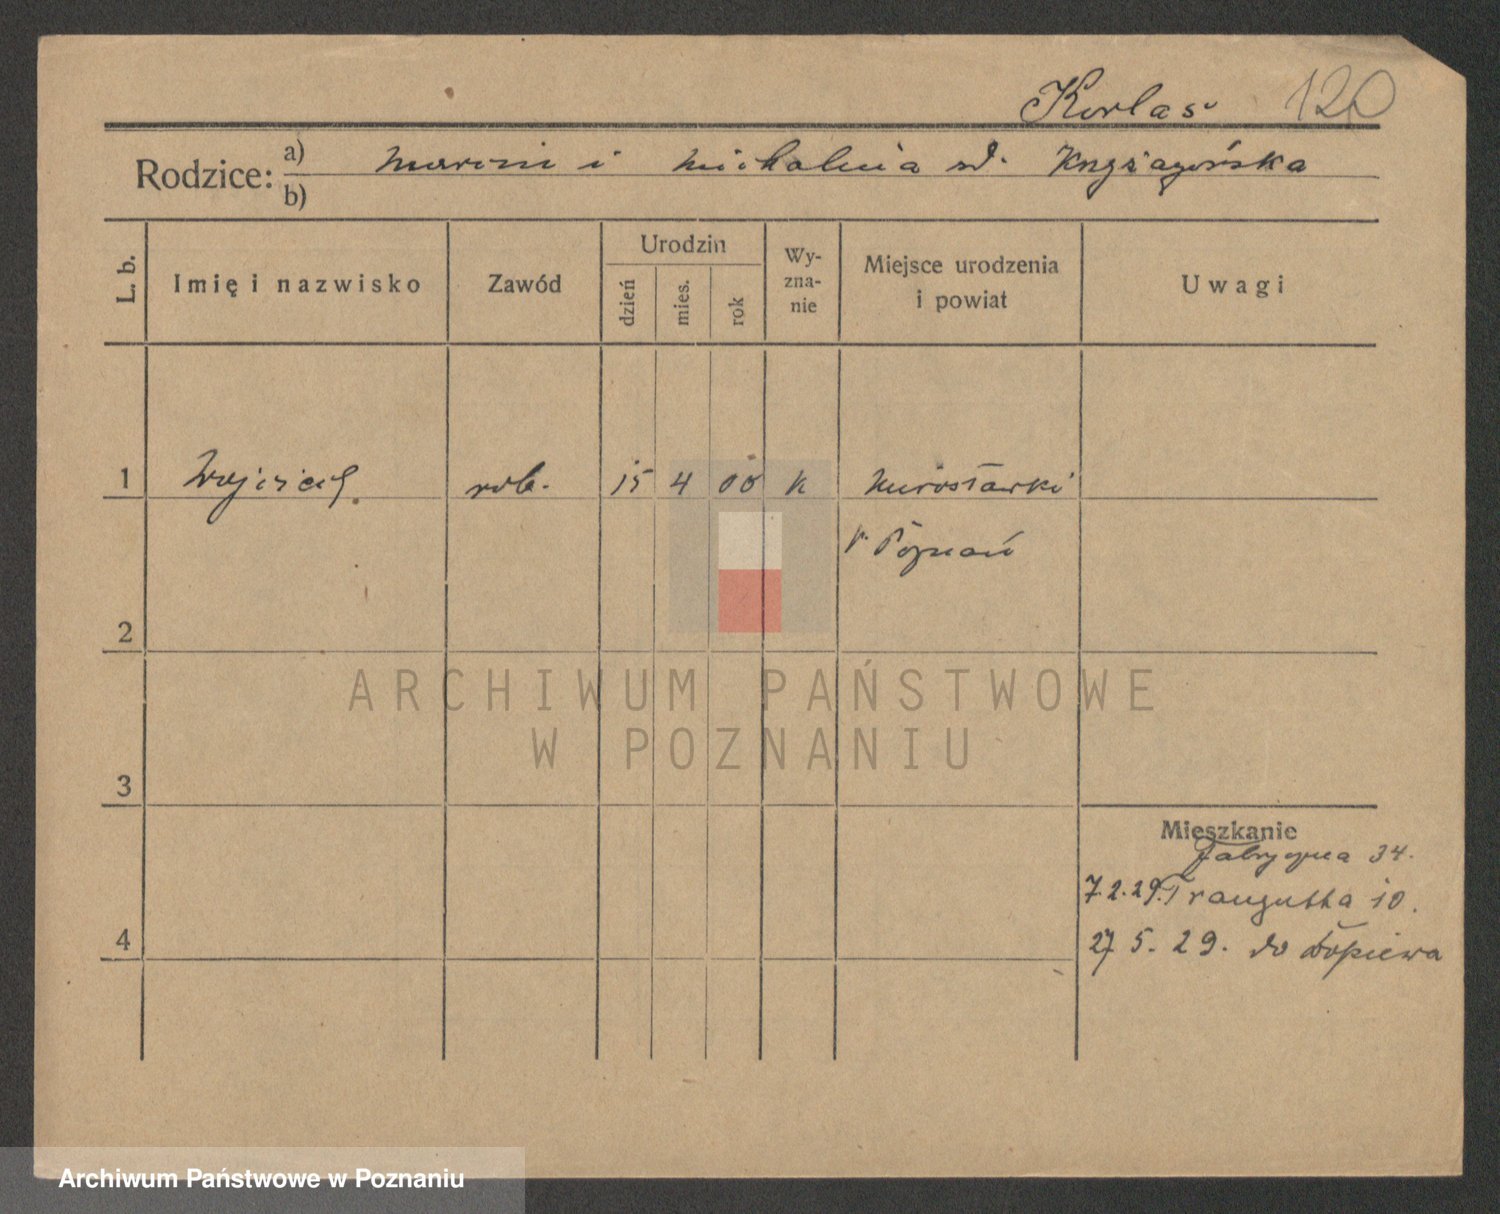 Korlas 120
Rodzice: a) Marcin i Michalina
b)
L. b.
Imię i nazwisko
Zawód
Urodzin
dzień
mies.
rok
Wy-
zna-
nie
Miejsce urodzenia
i powiat
Uwagi
1 Wojciech rob. 15 4 00 k Mirosławki
p. Poznań
2
3
4
Mieszkanie
Fabryczna 34.
7.2.29. Traugutta 10.
27 5. 29. do Dopiewa
ARCHIWUM PAŃSTWOWE
W POZNANIU
Archiwum Państwowe w Poznaniu